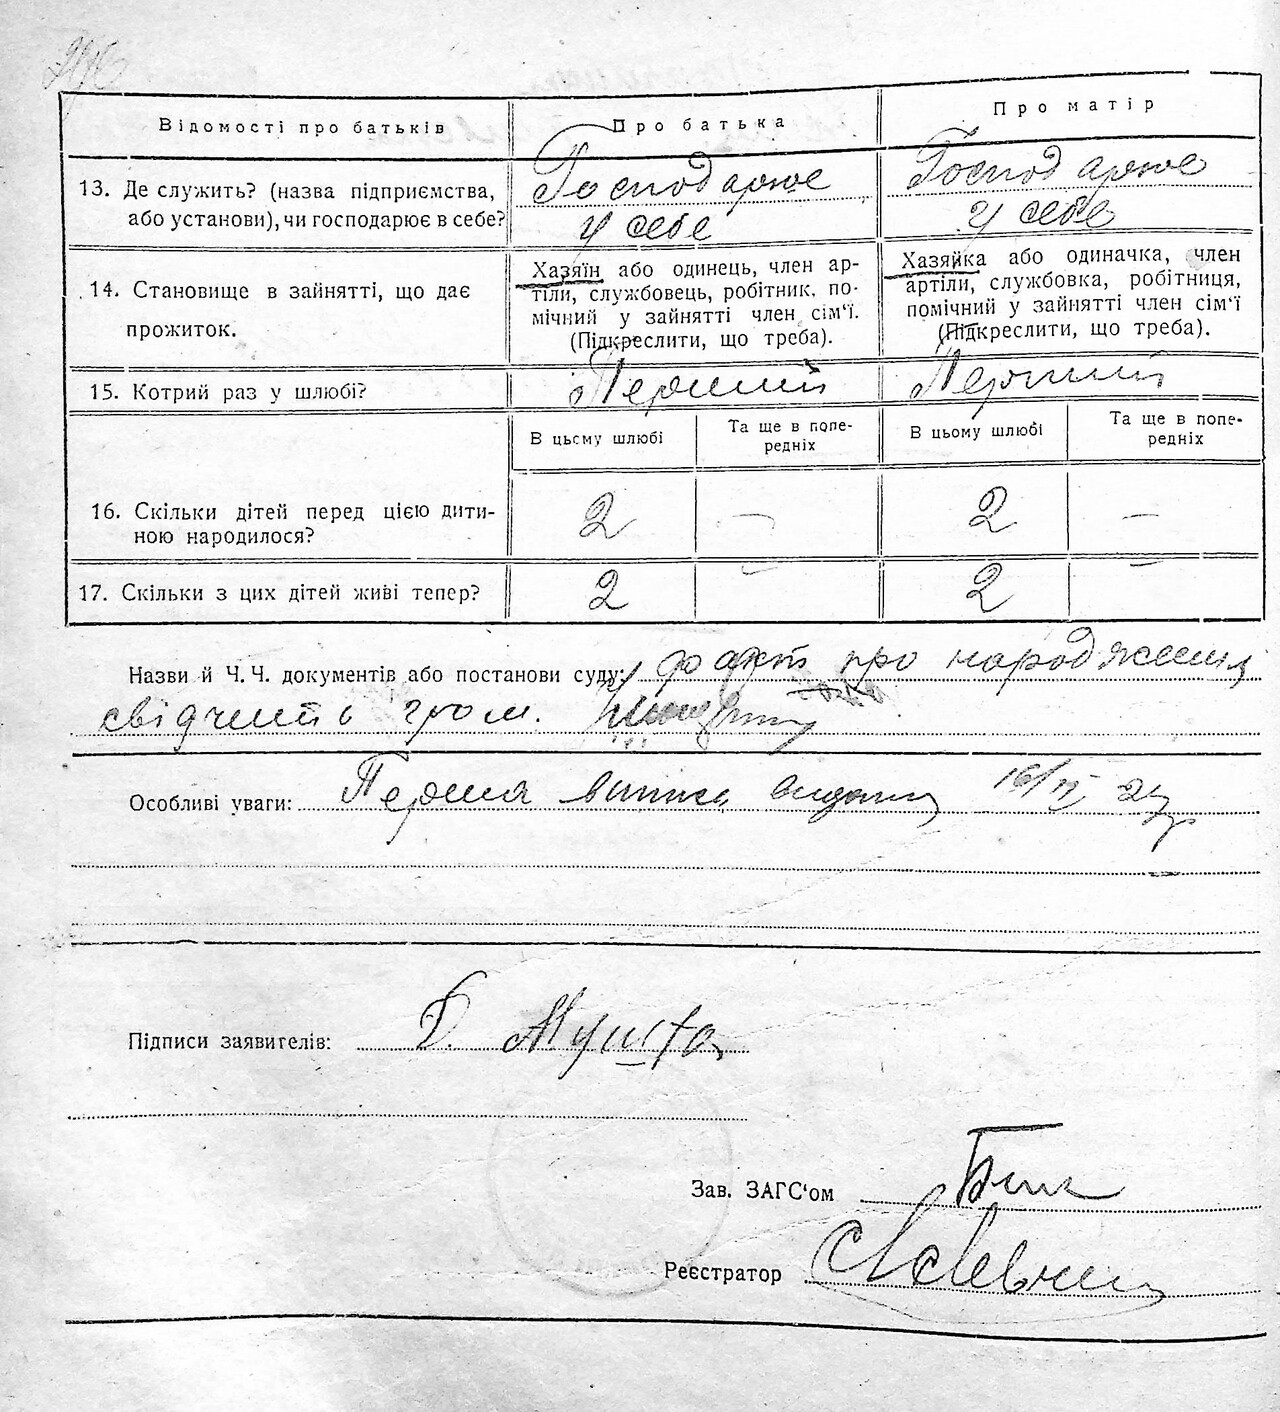 Відомості про батьків
Про батька
Про матір
13. Де служить? (назва підприємства,
або установи), чи господарює в себе?
Господарює
у себе
Господарює
у себе
14. Становище в зайнятті, що дає
прожиток.
Хазяїн або одинець, член ар-
тіли, службовець, робітник, по-
мічний у зайнятті член сім'ї.
(Підкреслити, що треба).
Хазяйка або одиначка, член
артіли, службовка, робітниця,
помічний у зайнятті член сім'ї
(Підкреслити, що треба).
15. Котрий раз у шлюбі?
Перший
Перший
В цьому шлюбі
Та ще в попе-
редніх
В цьому шлюбі
Та ще в попе-
редніх
16. Скільки дітей перед цією дити-
ною народилося?
2
—
2
—
17. Скільки з цих дітей живі тепер?
2
—
2
—
Назви й Ч. Ч. документів або постанови суду: факт про народження
свідчить гром.
Особливі уваги: Перша випись видана 16/
Підписи заявителів: Мушта
Зав. ЗАГС'ом
Реєстратор